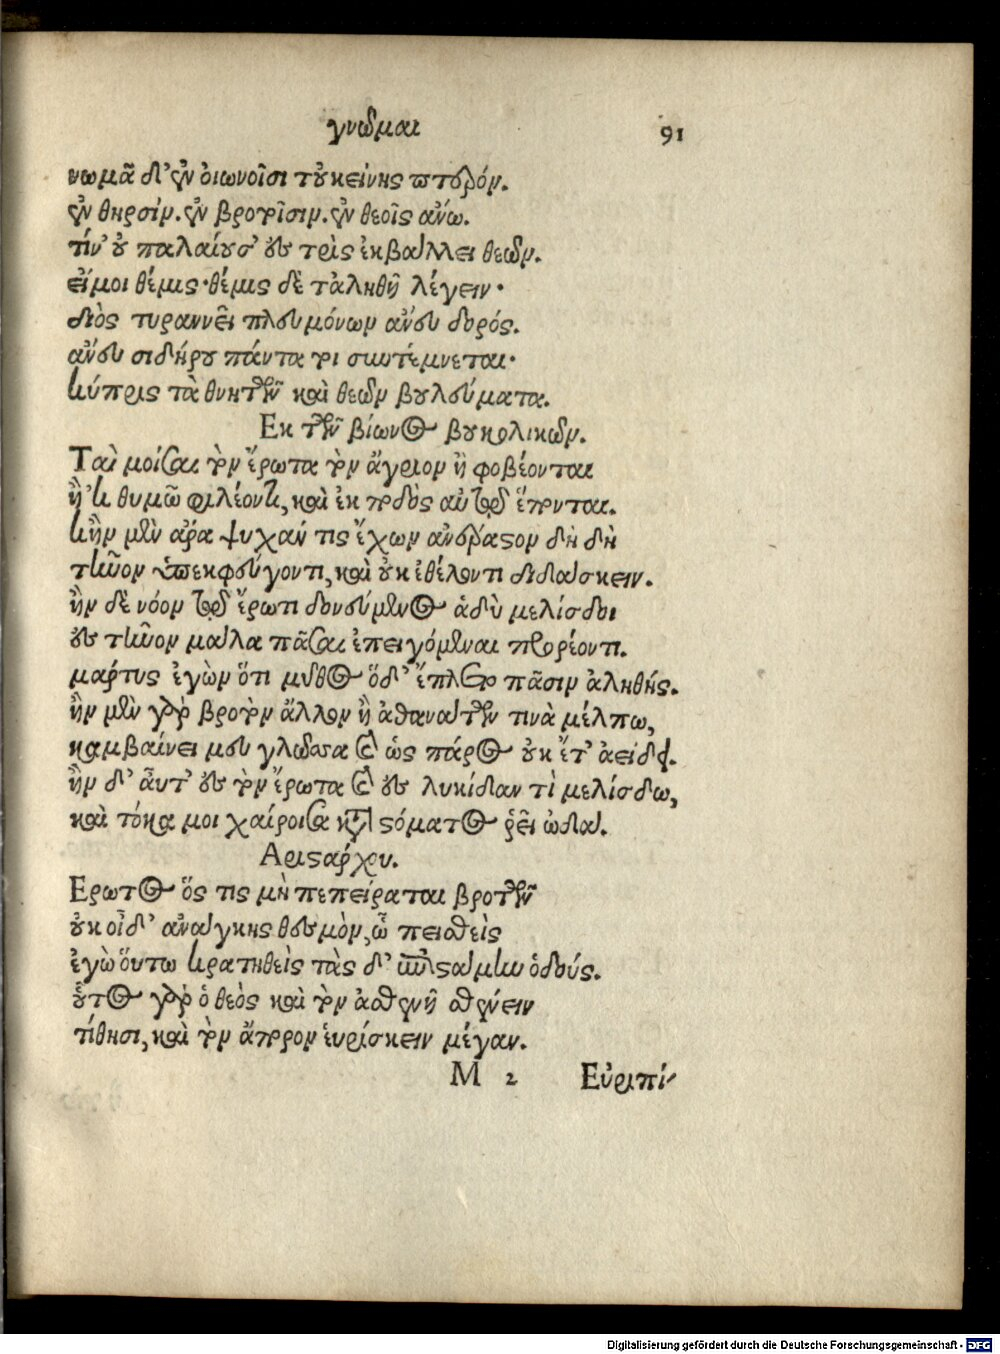 γνῶμαι 91
νωμᾷ δ' ἐν οἰωνοῖσι τοὐκείνης πτερόν.
ἐν θηρσίν. ἐν βροτοῖσιν. ἐν θεοῖς ἄνω.
τίν' οὐ παλαίουσ' ἐς τρὶς ἐκβάλλει θεῶν.
εἴ μοι θέμις· θέμις δὲ τἀληθῆ λέγειν·
διὸς τυραννεῖ πλευμόνων ἄνευ δορός.
ἄνευ σιδήρου πάντα τοι συντέμνεται·
κύπρις τὰ θνητῶν καὶ θεῶν βουλεύματα.
Εκ τῶν βίωνος βουκολικῶν.
Ταὶ μοίσαι τὸν ἔρωτα τὸν ἄγριον ἢ φοβέονται
ἢ 'κ θυμῶ φιλέοντι, καὶ ἐκ ποδὸς αὐτῷ ἕπονται.
κἢν μὲν ἄρα ψυχάν τις ἔχων ἀνέραστον δὴ δὴ
τῆνον ὑπεκφεύγοντι, καὶ οὐκ ἐθέλοντι διδάσκειν.
ἢν δὲ νόον τῷ ἔρωτι δονεύμενος ἁδὺ μελίσδοι
ἐς τῆνον μάλα πᾶσαι ἐπειγόμεναι προρέοντι.
μάρτυς ἐγὼν ὅτι μῦθος ὅδ' ἔπλετο πᾶσιν ἀληθής.
ἢν μὲν γὰρ βροτὸν ἄλλον ἢ ἀθανάτων τινὰ μέλπω,
καμβαίνει μευ γλῶσσα καὶ ὡς πάρος οὐκ ἔτ' ἀείδει.
ἢν δ' αὖτ' ἐς τὸν ἔρωτα καὶ ἐς λυκίδαν τὶ μελίσδω,
καὶ τόκα μοι χαίροισα κατὰ στόματος ῥεῖ ᾠδά.
Αριστάρχου.
Ερωτος ὅς τις μὴ πεπείραται βροτῶν
οὐκ οἶδ' ἀνάγκης θεσμὸν, ᾧ πεισθεὶς
ἐγὼ οὕτω κρατηθεὶς τὰς δ' ἀπεστάλμην ὁδούς.
οὗτος γὰρ ὁ θεὸς καὶ τὸν ἀσθενῆ σθένειν
τίθησι, καὶ τὸν ἄπορον εὑρίσκειν μέγαν.
M 2 Εὐριπί-
Digitalisierung gefördert durch die Deutsche Forschungsgemeinschaft - DFG